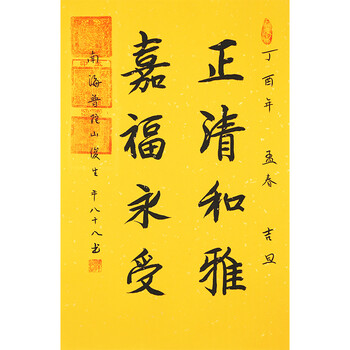 丁酉年 孟春 吉旦
正清和雅
嘉福永受
南海普陀山俊生 年八十八书